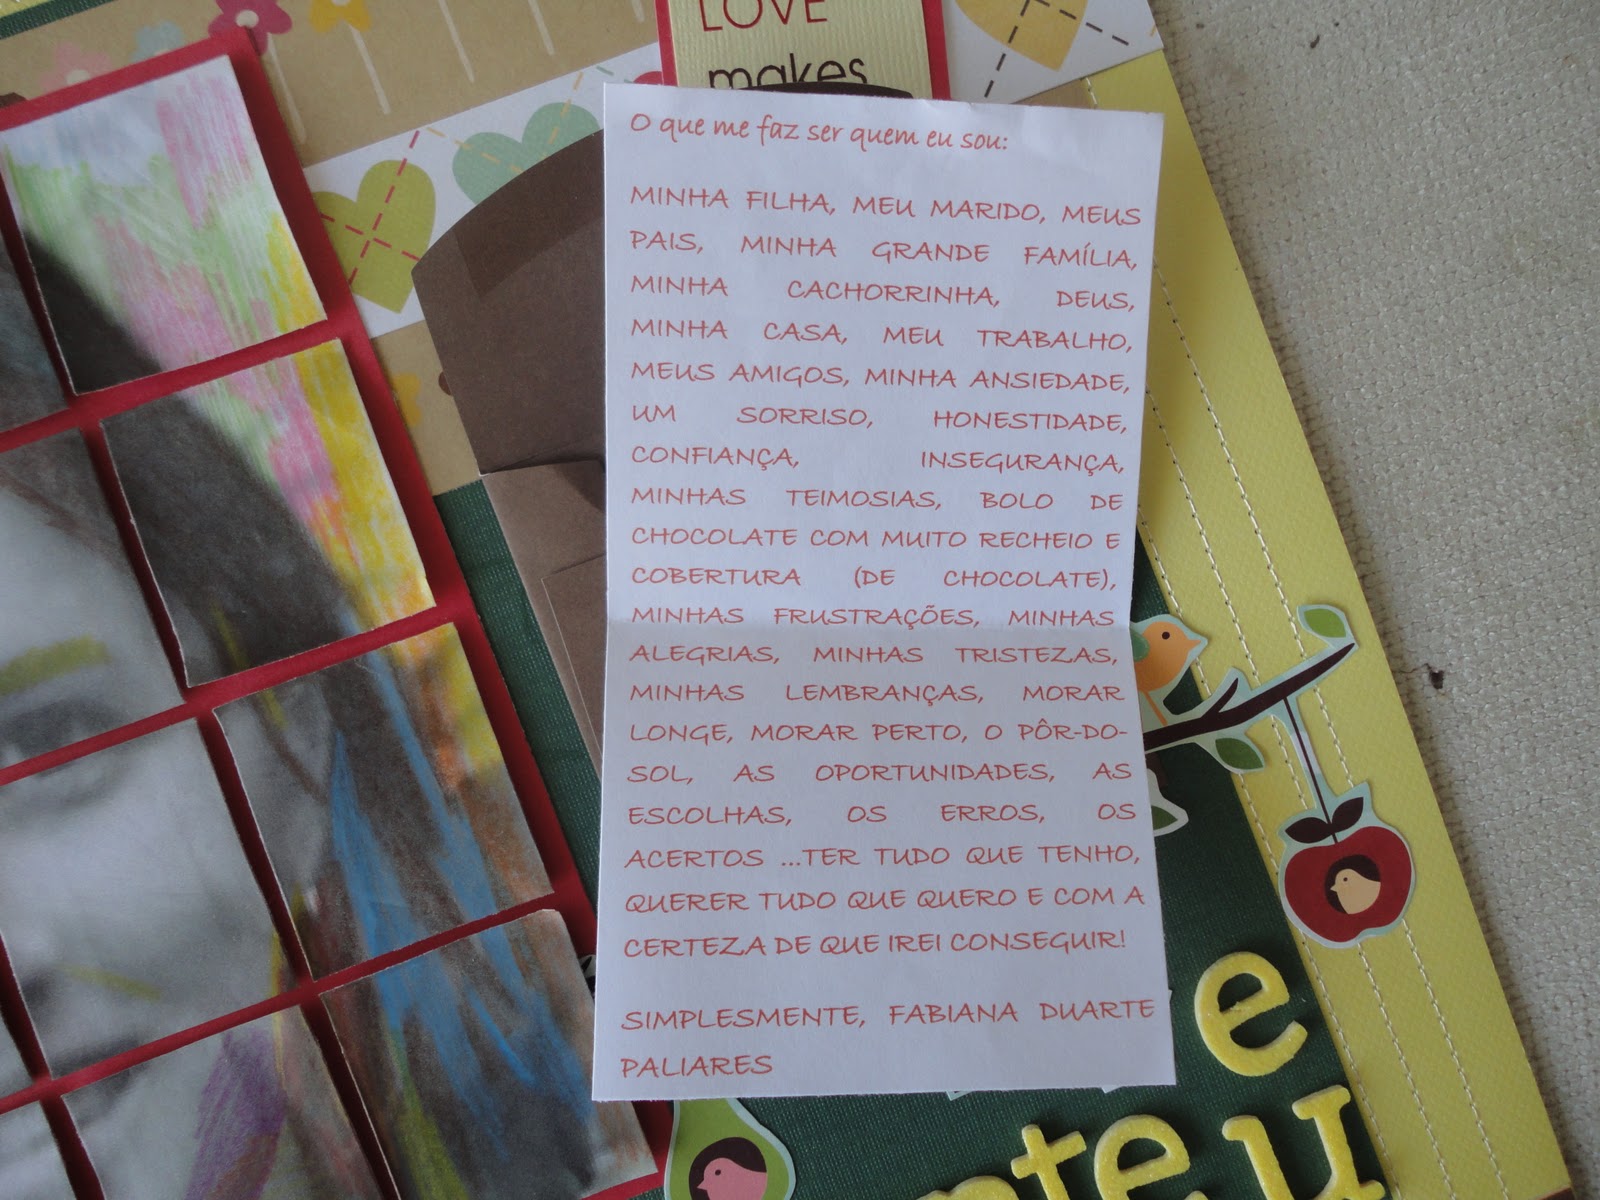 LOVE
makes
O que me faz ser quem eu sou:
MINHA FILHA, MEU MARIDO, MEUS
PAIS, MINHA GRANDE FAMÍLIA,
MINHA CACHORRINHA, DEUS,
MINHA CASA, MEU TRABALHO,
MEUS AMIGOS, MINHA ANSIEDADE,
UM SORRISO, HONESTIDADE,
CONFIANÇA, INSEGURANÇA,
MINHAS TEIMOSIAS, BOLO DE
CHOCOLATE COM MUITO RECHEIO E
COBERTURA (DE CHOCOLATE),
MINHAS FRUSTRAÇÕES, MINHAS
ALEGRIAS, MINHAS TRISTEZAS,
MINHAS LEMBRANÇAS, MORAR
LONGE, MORAR PERTO, O PÔR-DO-
SOL, AS OPORTUNIDADES, AS
ESCOLHAS, OS ERROS, OS
ACERTOS ...TER TUDO QUE TENHO,
QUERER TUDO QUE QUERO E COM A
CERTEZA DE QUE IREI CONSEGUIR!
SIMPLESMENTE, FABIANA DUARTE
PALIARES
e
nte u